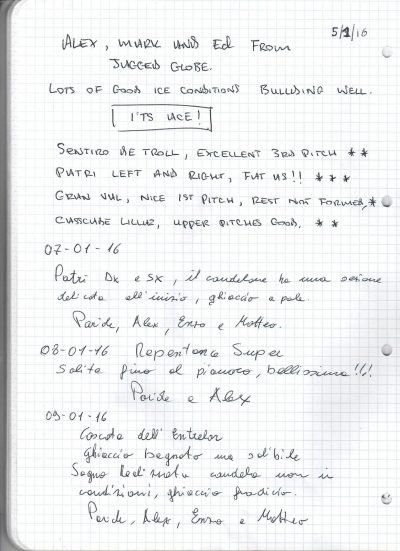 5/1/16
ALEX, MARK AND ED FROM
JAGGED GLOBE.
LOTS OF GOOD ICE CONDITIONS BUILDING WELL.
I'TS ICE!
SENTIRO DE TROLL, EXCELLENT 3RD PITCH **
PATRI LEFT AND RIGHT, FAT US!! ***
GRAN VAL, NICE 1ST PITCH, REST NOT FORMED, *
CASCADE LILLAZ, UPPER PITCHES GOOD. **
07-01-16
Patri Dx e SX, il candelone ha una sezione
delicata all'inizio, ghiaccio a pale.
Paride, Alex, Enzo e Matteo.
08-01-16 Repentance Super
Salita fino al pianoro, bellissima!!!
Paride e Alex
09-01-16
Cascata dell'Entrelor
Ghiaccio bagnato ma salibile
Sogno candela non in
condizioni, ghiaccio fradicio.
Paride, Alex, Enzo e Matteo